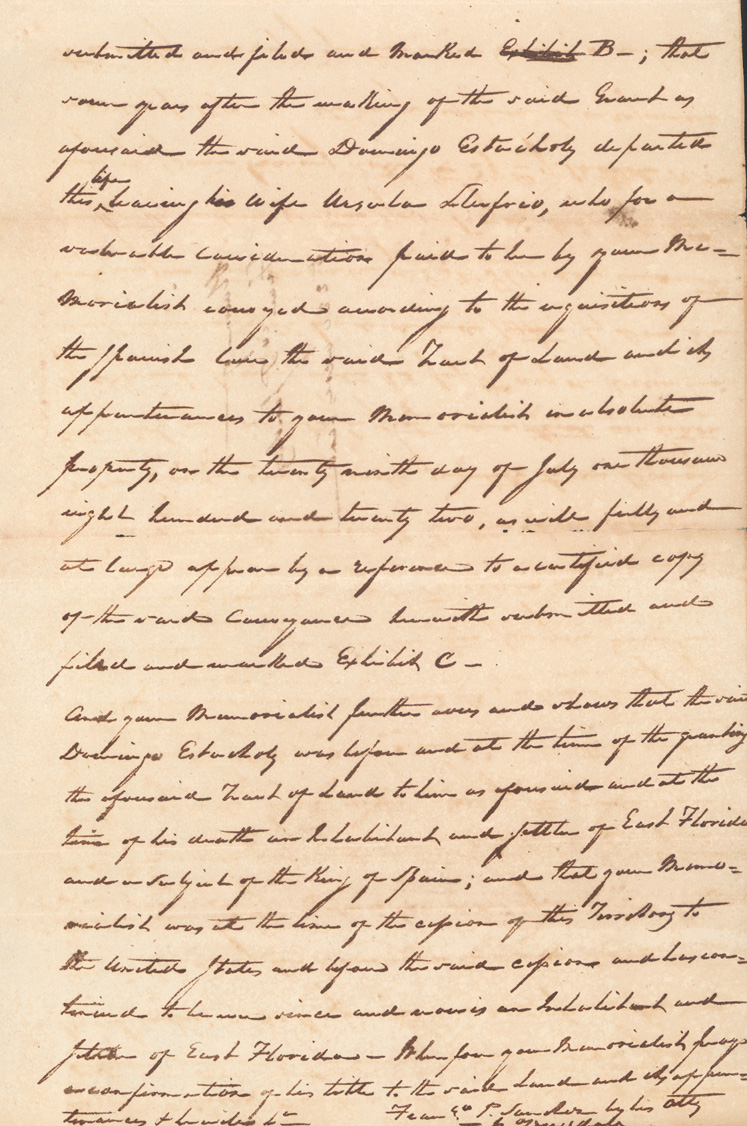 submitted and filed and marked Exhibit B-; that
some years after the making of the said Grant as
aforesaid the said Domingo Estacholy departed
this life, leaving his Wife Ursula Llufrio, who for a
valuable consideration paid to her by your Me=
=morialist conveyed according to the requisitions of
the Spanish law the said Tract of Land and its
appurtenances to your Memorialist in absolute
property, on the twenty ninth day of July one thousand
eight hundred and twenty two, as will fully and
at large appear by a reference to a certified copy
of the said Conveyance herewith submitted and
filed and marked Exhibit C -
And your Memorialist further avers and shows that the said
Domingo Estacholy was before and at the time of the granting
the aforesaid Tract of Land to him as aforesaid and at the
time of his death an Inhabitant and settler of East Florida
and a subject of the King of Spain; and that your Memo=
rialist was at the time of the cession of this Territory to
the United States and before the said cession and has con=
tinued to be ever since and now is an Inhabitant and
settler of East Florida - Wherefore your Memorialist prays
a confirmation of his title to the said Land and its appur=
tenances &
Franco P. Sanchez by his Atty